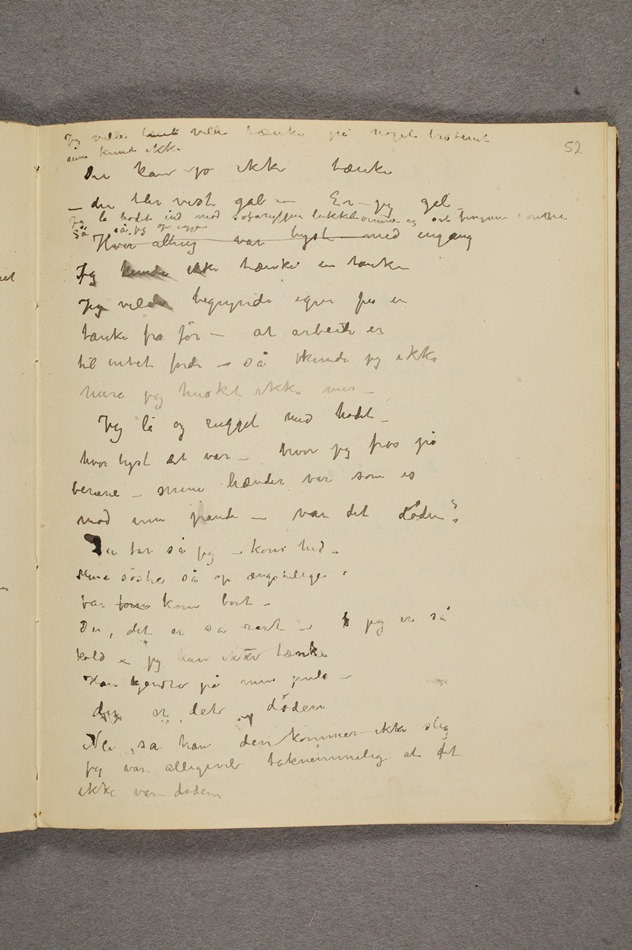 52
Jeg vilde tænke vilde tænke på noget bestemt
men kunde ikke
Du kan jo ikke tænke
– du blir visst gal – Er jeg gal –
Jeg lå hodet ind mod
så jeg op igjen
Hvor alting var lyst med engang
Jeg kunde ikke tænke en tanke
Jeg vilde begynde igjen på en
tanke fra før – at arbeide er
til intet førte – så kunde jeg ikke
mere jeg husket ikke mer –
Jeg lå og rugget med hodet –
hvor lyst det var – hvor jeg frøs på
benene – mine hænder var som is
mod min pande – var det døden?
Du far sa jeg – kom hid –
Mine søstre så op ængstelige
far kom bort –
Du, det er så rart – jeg er så
kold – jeg kan ikke tænke
Han kjendte på min puls –
du, er dete døden
Nei, sa han den kommer ikke slig
Jeg var alligevel taknemmelig at det
ikke var døden